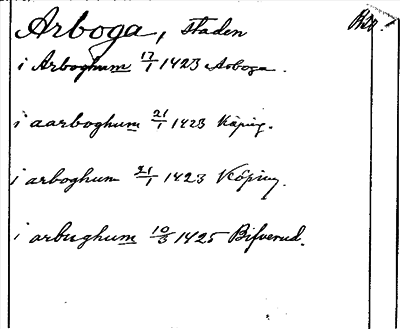 Arboga, staden
i Arboghum 17/1 1423 Arboga.
i aarboghum 21/1 1423 Köping.
i arboghum 21/1 1423 Köping.
i arbughum 10/3 1425 Bifverud.